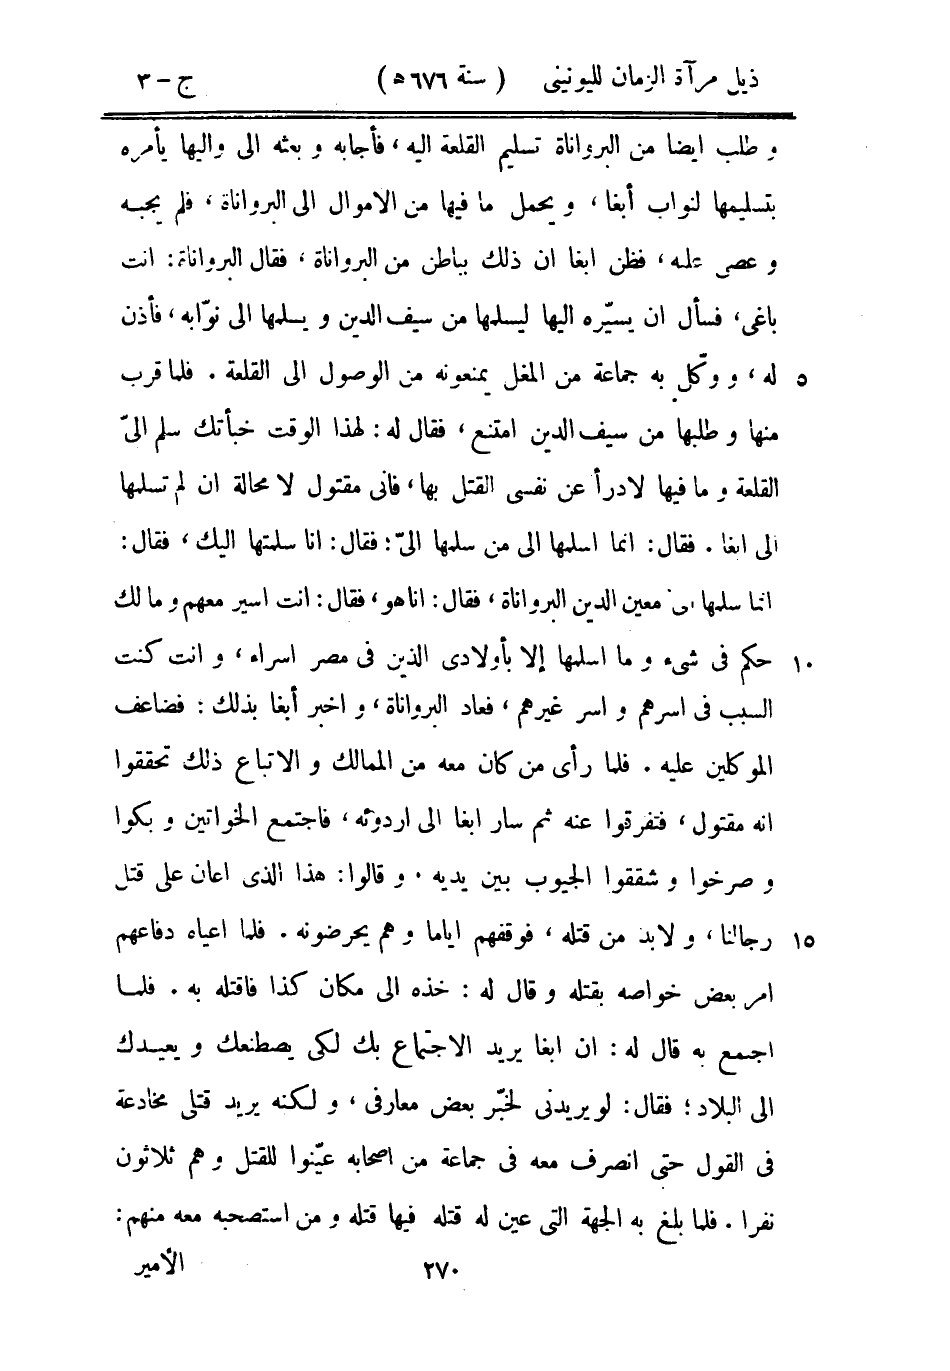 ذيل مرآة الزمان لليونينى ( سنة ٦٧٦ﻫ ) ج – ٣
و طلب ايضا من البرواناة تسليم القلعة اليه ، فأجابه و بعثه الى واليها يأمره
بتسليمها لنواب أبغا ، و يحمل ما فيها من الاموال الى البرواناة ، فلم يجبه
و عصى عليه ، فظن ابغا ان ذلك بباطن من البرواناة ، فقال البرواناة : انت
باغى ، فسأل ان يسيّره اليها ليسلمها من سيف الدين و يسلمها الى نوّابه ، فأذن
٥ له ، و وكّل به جماعة من المغل يمنعونه من الوصول الى القلعة . فلما قرب
منها و طلبها من سيف الدين امتنع ، فقال له : لهذا الوقت خبأتك سلم الىّ
القلعة و ما فيها لادرأ عن نفسى القتل بها ، فانى مقتول لا محالة ان لم تسلمها
الى ابغا . فقال : انما اسلمها الى من سلمها الىّ ؛ فقال : انا سلمتها اليك ، فقال :
انما سلمها الى معين الدين البرواناة ، فقال : اناهو ، فقال : انت اسير معهم و مالك
١٠ حكم فى شىء و ما اسلمها إلا بأولادى الذين فى مصر اسراء ، و انت كنت
السبب فى اسرهم و اسر غيرهم ، فعاد البرواناة ، و اخبر أبغا بذلك : فضاعف
الموكلين عليه . فلما رأى من كان معه من الممالك و الاتباع ذلك تحققوا
انه مقتول ، فتفرقوا عنه ثم سار ابغا الى اردوئه ، فاجتمع الخواتين و بكوا
و صرخوا و شققوا الجيوب بين يديه . و قالوا : هذا الذى اعان على قتل
١٥ رجالنا ، و لابد من قتله ، فوقفهم اياما و هم يحرضونه . فلما اعياه دفاعهم
امر بعض خواصه بقتله و قال له : خذه الى مكان كذا فاقتله به . فلما
اجمع به قال له : ان ابغا يريد الاجتماع بك لكى يصطنعك و يعيدك
الى البلاد ؛ فقال : لو يريدنى لخبّر بعض معارفى ، و لكنه يريد قتلى مخادعة
فى القول حتى انصرف معه فى جماعة من اصحابه عيّنوا للقتل و هم ثلاثون
نفرا . فلما بلغ به الجهة التى عين له قتله فيها قتله و من استصحبه معه منهم :
٢٧٠ الأمير